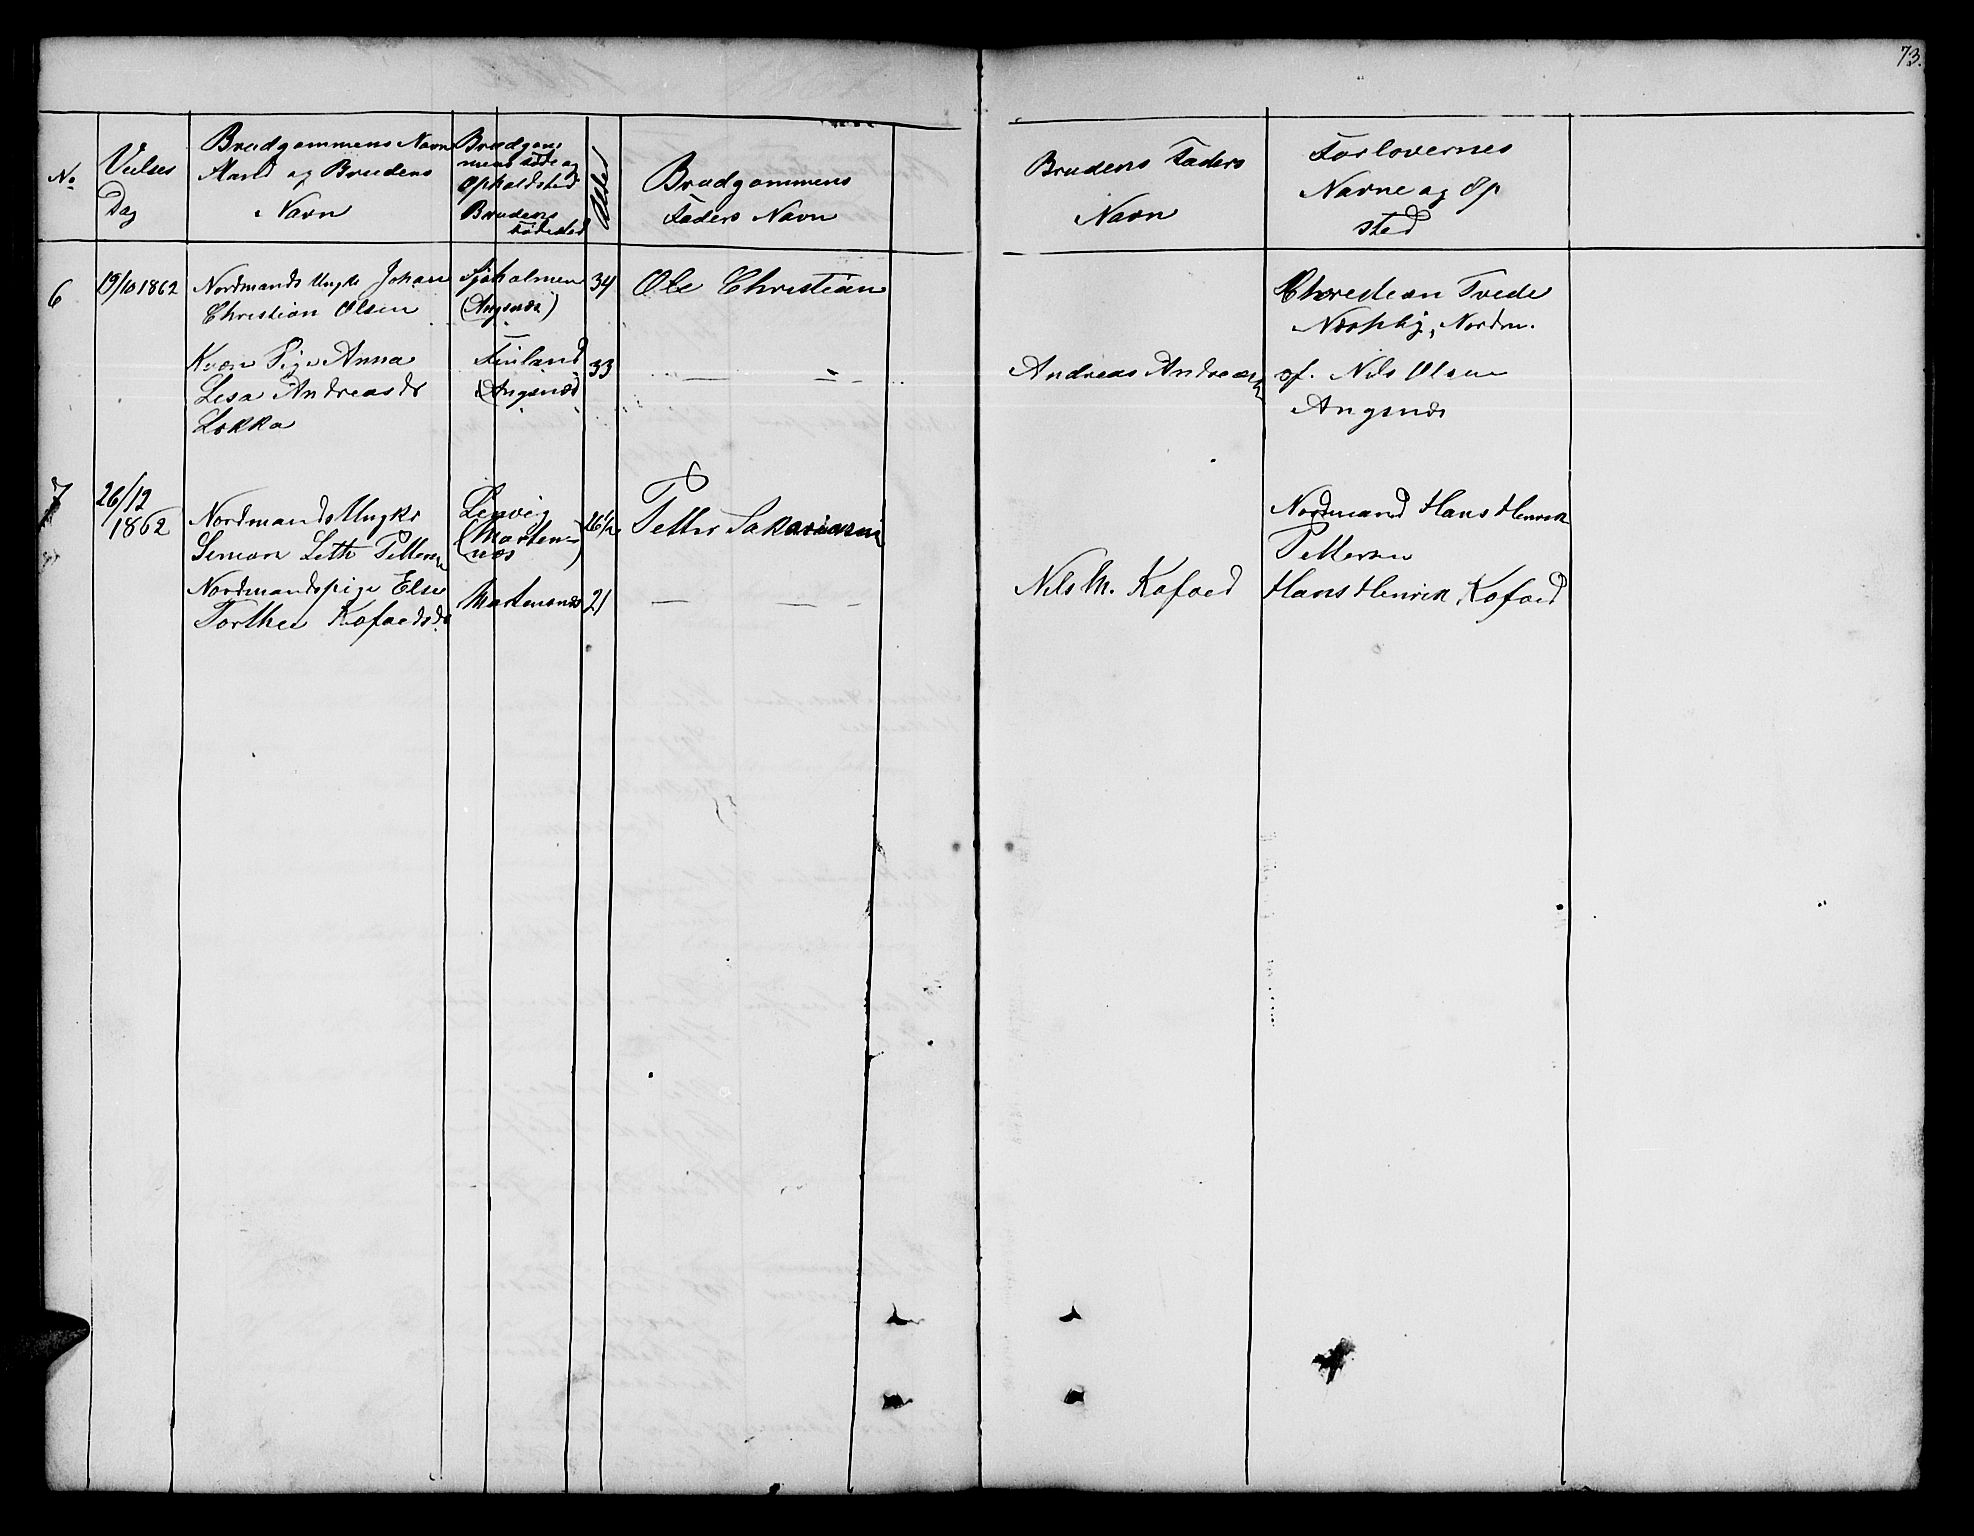 73.
No
Vielses
Dag
Brudgommens Navn
Stand og Brudens
Navn
Brudgom
mens Føde og
Opholdsted
Brudens
Fødested
Alder
Brudgommens
Faders Navn
Brudens Faders
Navn
Forlovernes
Navne og Op
sted
6
19/10 1862
Nordmands Ungk. Johan
Christian Olsen
(Angsnæs)
34
Ole Christian
Christian Tvede
Næsseby, Nordm.
Kvæn Pige Anna
Lisa Andreasdr
Lokka
Finland
(Angsnæs)
33
Andreas Andreasen
of. Nils Olsen
Angsnæs
7
26/12
1862
Nordmands Ungkr
Simon Leth Pettersen
Lenvig
(Mortens-
næs)
26 1/2
Petter Sakariasen
Nordmand Hans Henrik
Pettersen
Nordmandspige Else
Torthea Kofoedsdr
Mortensnæs
21
Nils M. Kofoed
Hans Henrik Kofoed